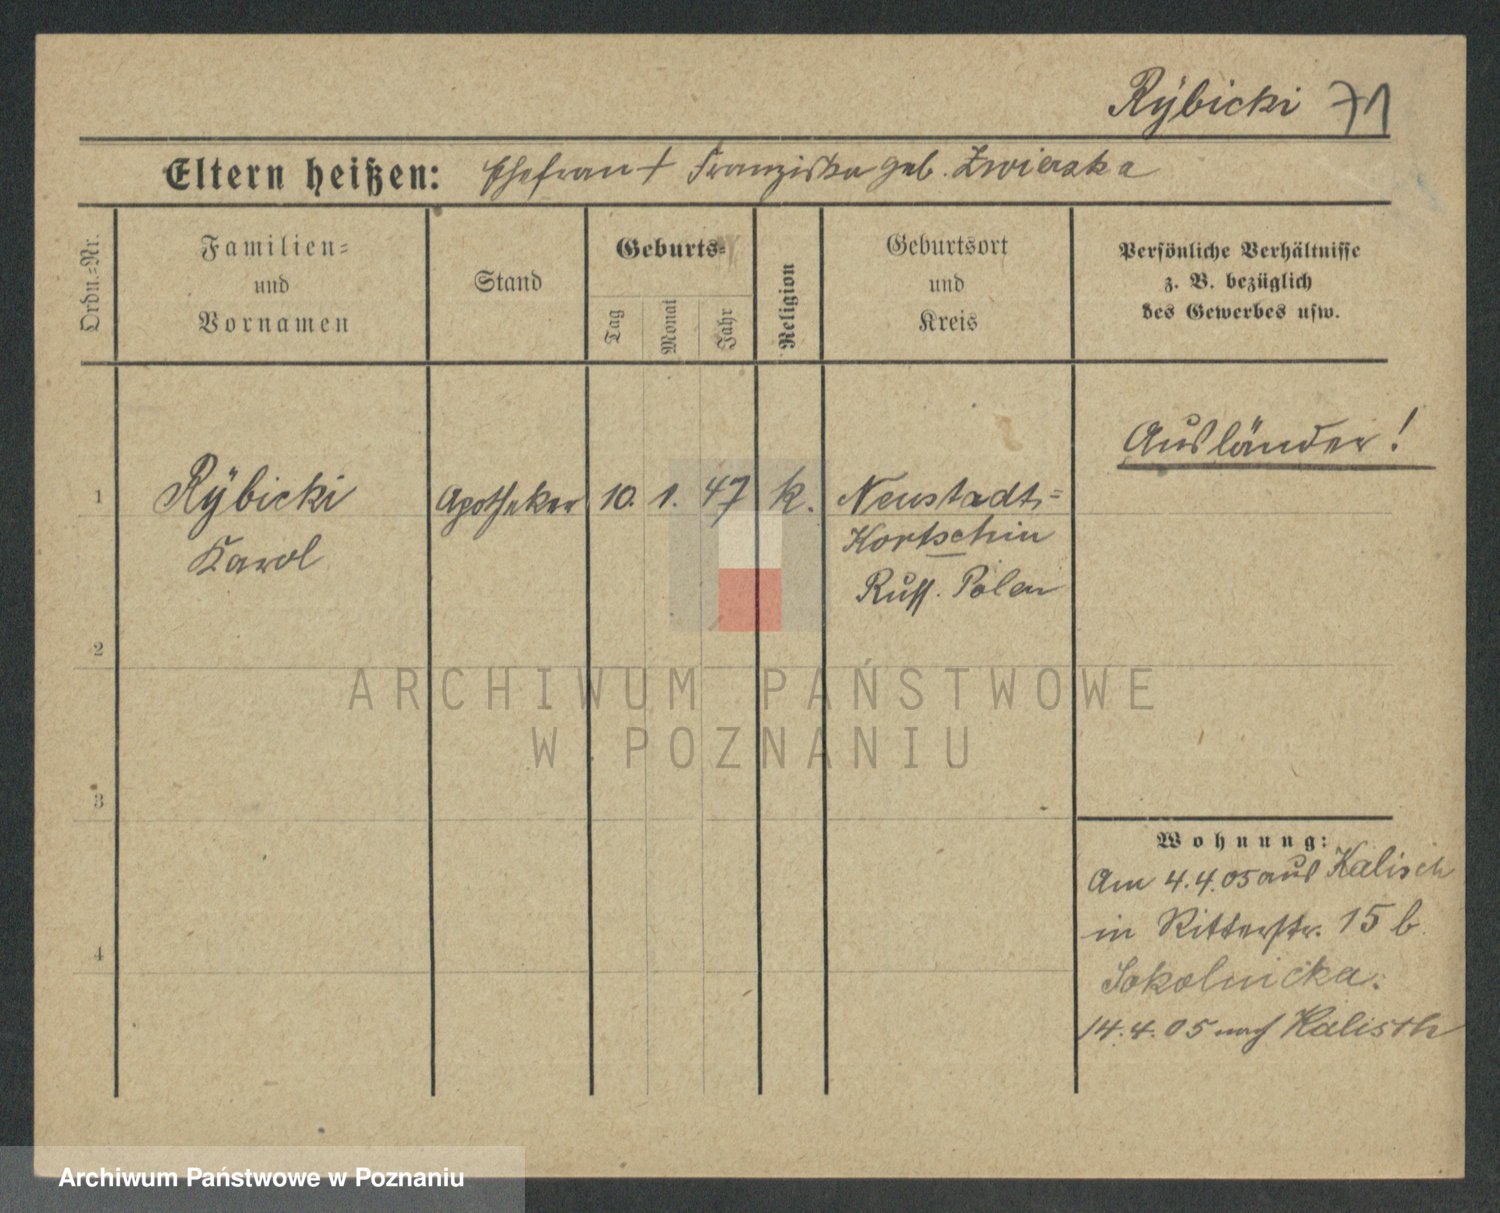 Rÿbicki 71
Eltern heißen: Ehefrau + Franziska geb. Zwierzka
Ordn.=Nr.
Familien=
und
Vornamen
Stand
Geburts=
Tag
Monat
Jahr
Religion
Geburtsort
und
Kreis
Persönliche Verhältnisse
z. B. bezüglich
des Gewerbes usw.
Ausländer!
1 Rÿbicki Apotheker 10. 1. 47 k. Neustadt=
Karol Kortschin
Russ. Polen
2
ARCHIWUM PAŃSTWOWE
W POZNANIU
3
Wohnung:
Am 4.4.05 aus Kalisch
in Ritterstr. 15 b.
4
Sokolnicka.
14.4.05 nach Kalisch
Archiwum Państwowe w Poznaniu